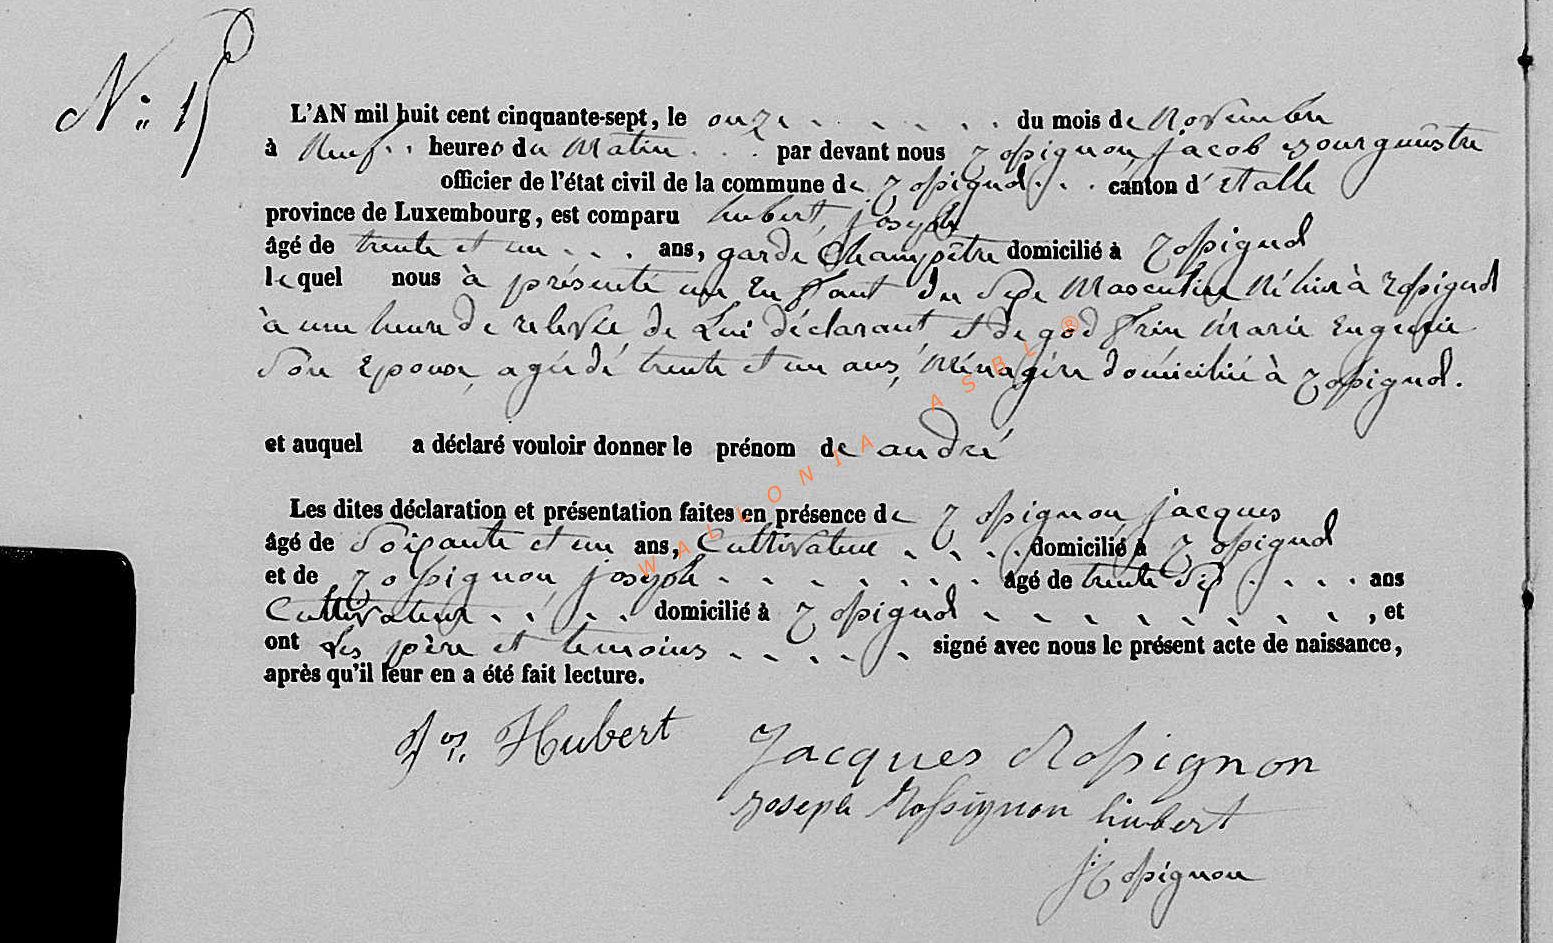 N° 15
L'AN mil huit cent cinquante-sept, le onze du mois de Novembre
à Neuf heures du Matin par devant nous Rossignon, jacob Bourgmestre
officier de l'état civil de la commune de Rossignol canton d'Etalle
province de Luxembourg, est comparu hubert, joseph
âgé de trente et un ans, garde Champêtre domicilié à Rossignol
lequel nous à présenté un Enfant du Sexe Masculin Né hier à Rossignol
à une heure de relevée, de Lui déclarant et de godfrin Marie Eugenie
Son Epouse, agée de trente et un ans, Ménagère domiciliée à Rossignol.
et auquel a déclaré vouloir donner le prénom de andré
Les dites déclaration et présentation faites en présence de Rossignon jacques
âgé de Soixante et un ans, Cultivateur domicilié à Rossignol
et de Rossignon, joseph âgé de trente Six ans
Cultivateur domicilié à Rossignol , et
ont Les père et temoins signé avec nous le présent acte de naissance,
après qu'il leur en a été fait lecture.
Jos. Hubert Jacques Rossignon
Joseph Rossignon hubert
J Rossignon
WALLONIA ASBL ®